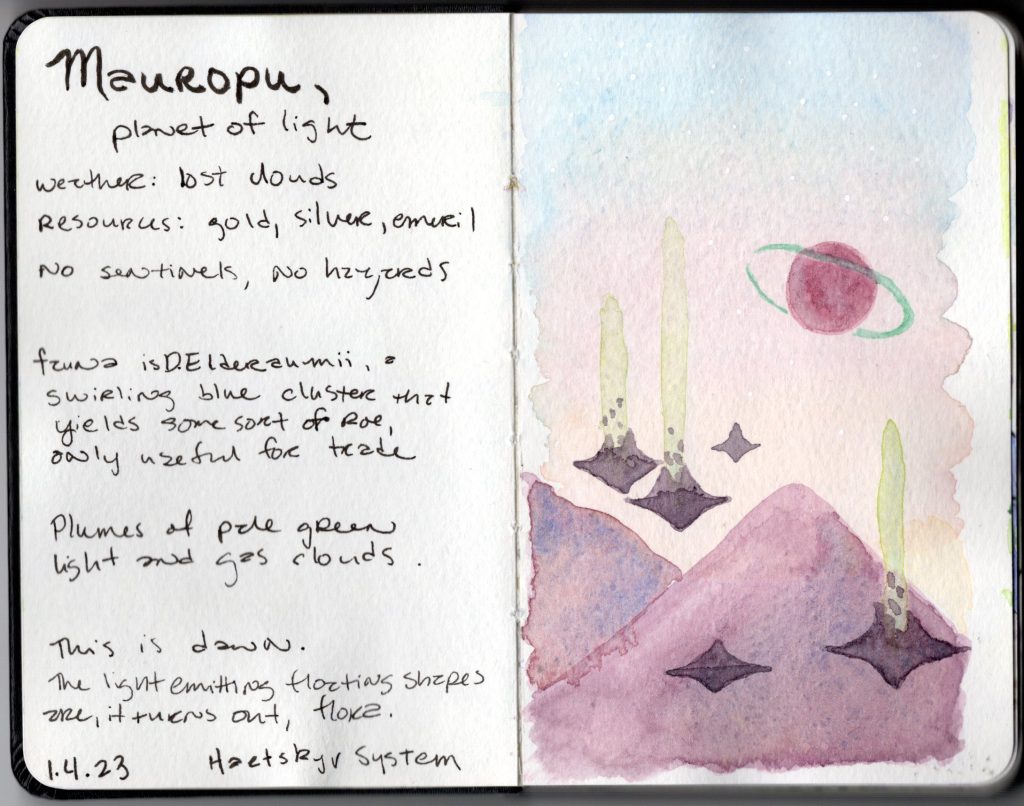 Mauropu,
planet of light
weather: lost clouds
Resources: gold, silver, emeril
No sentinels, No hazards
fauna is D. Elderaumii, a
swirling blue cluster that
yields some sort of roe,
only useful for trade
Plumes of pale green
light and gas clouds.
This is dawn.
The light emitting floating shapes
are, it turns out, flora.
1.4.23 Haetskyr System